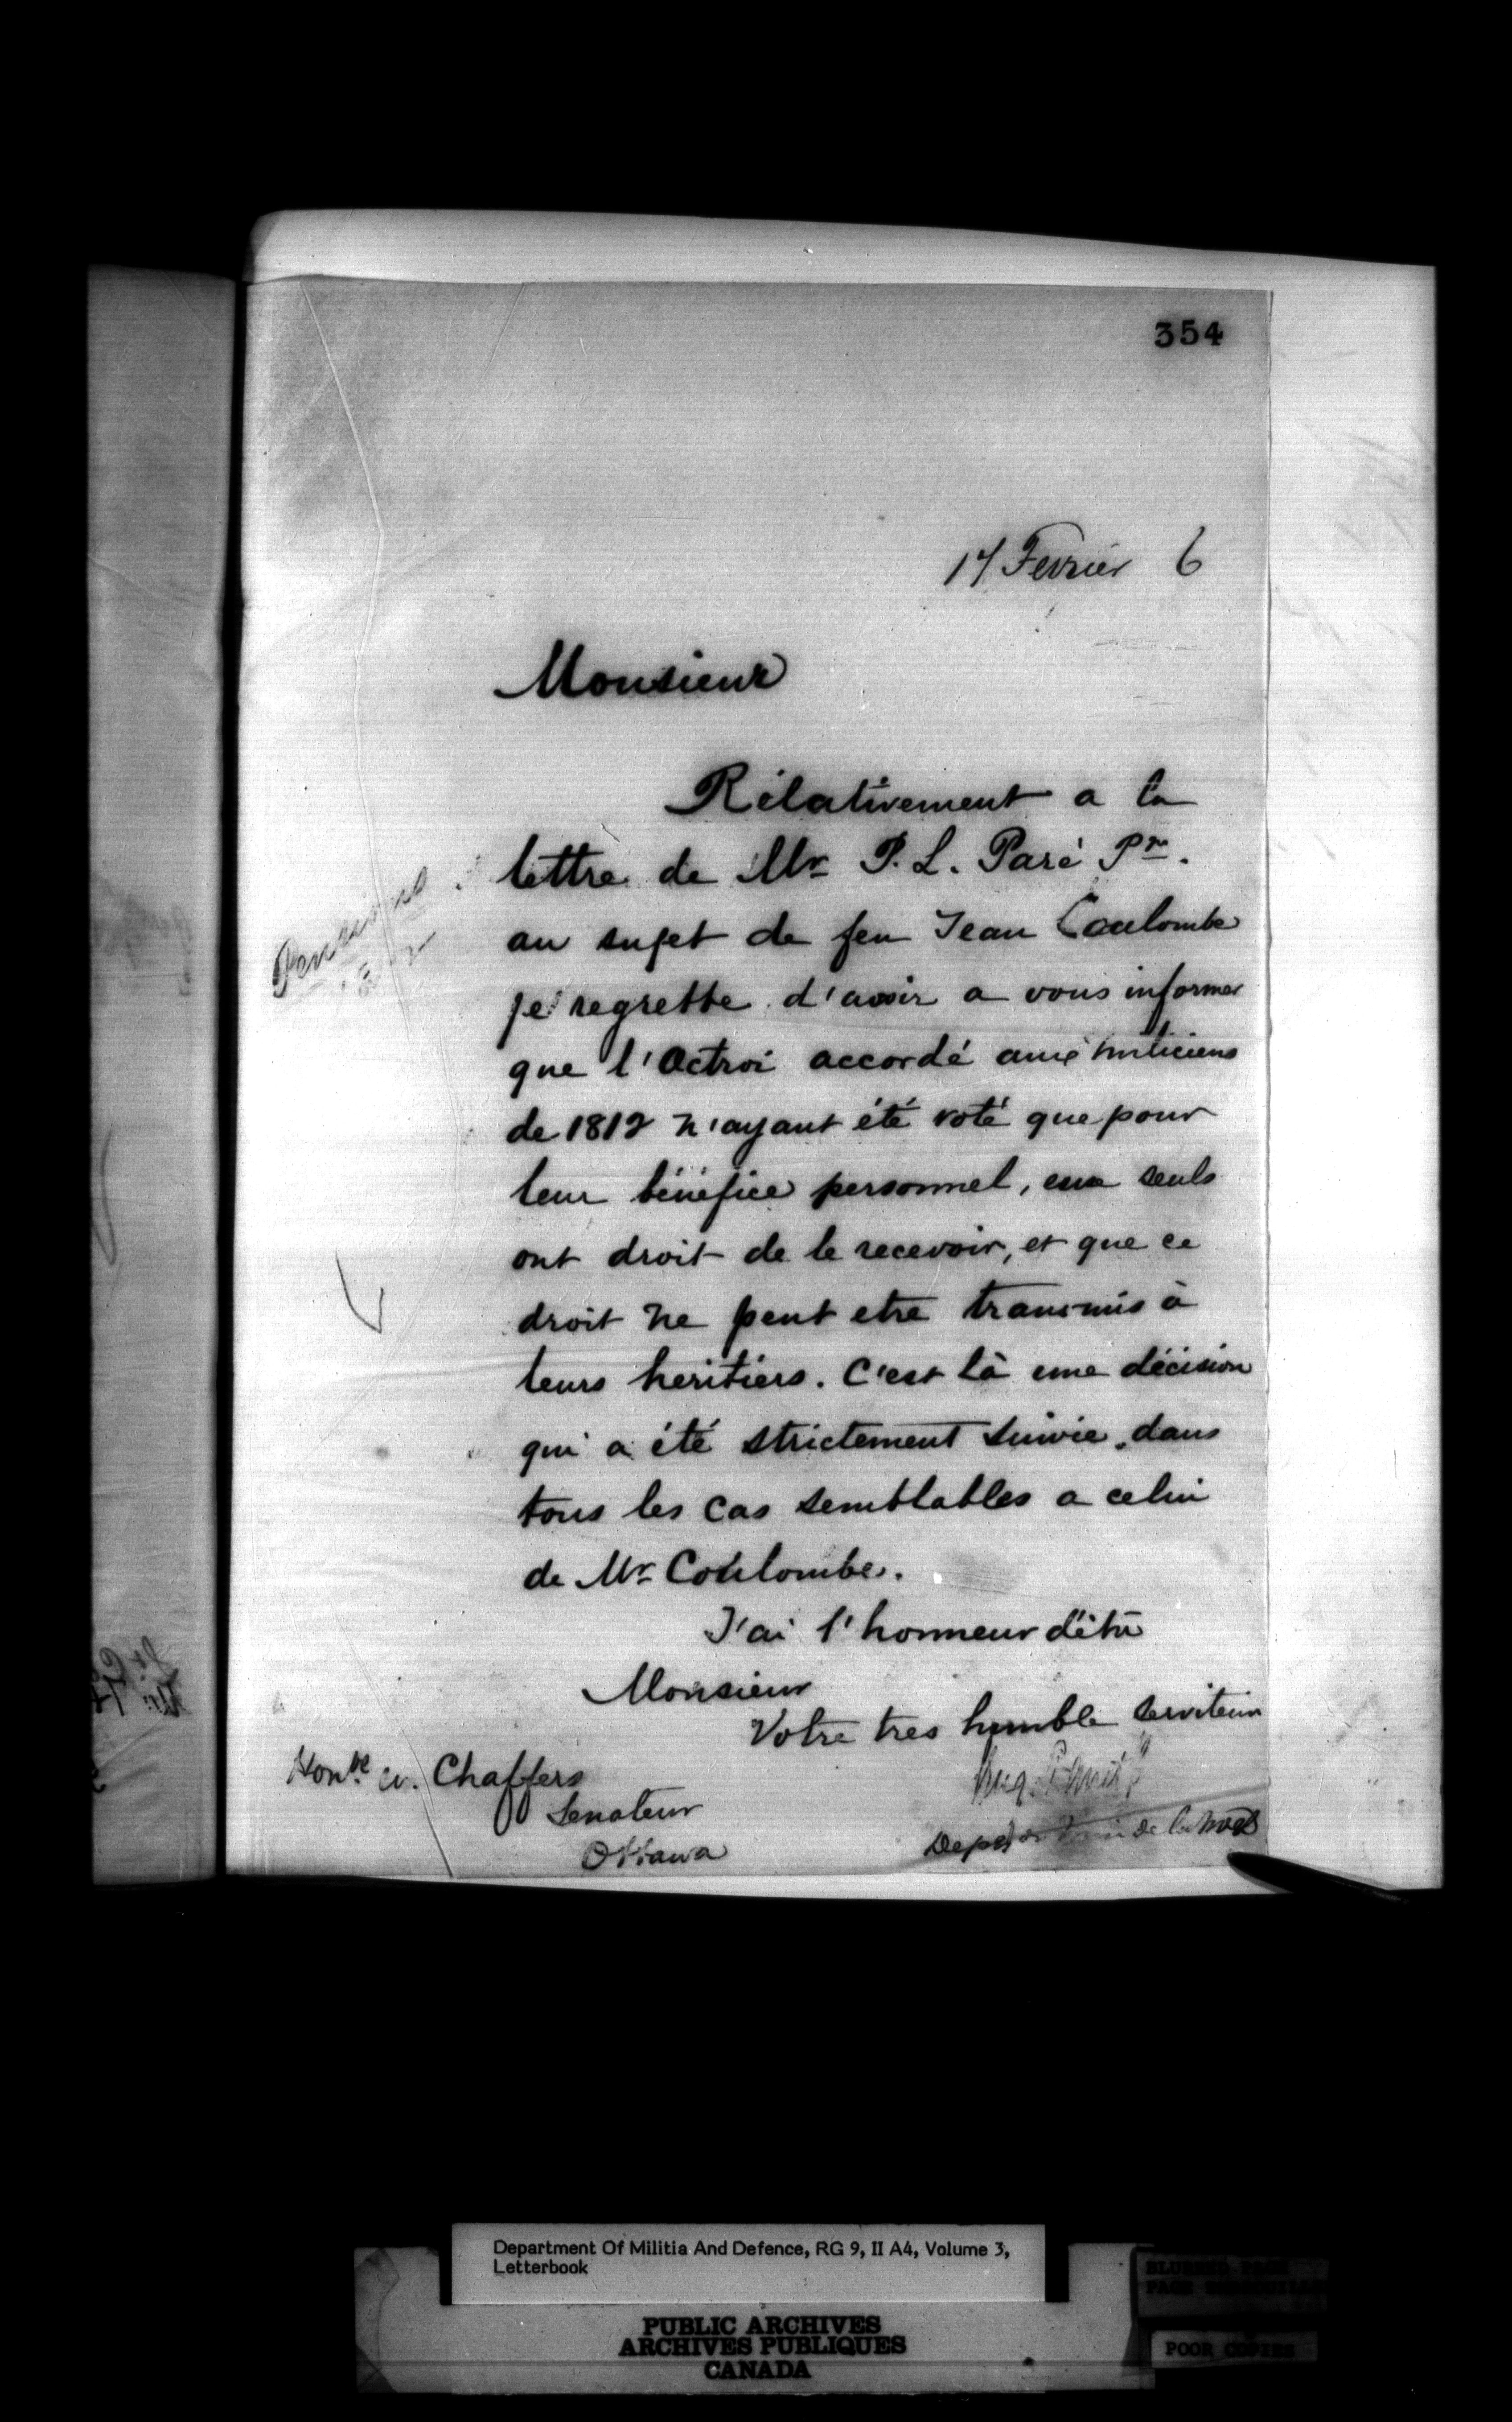 354
17 Fevrier 6
Monsieur
Rélativement a la
lettre de Mr P. L. Paré Pre.
au sujet de feu Jean Coulombe
je regrette d'avoir a vous informer
que l'Octroi accordé aux miliciens
de 1812 n'ayant été voté que pour
leur bénéfice personnel, eux seuls
ont droit de le recevoir, et que ce
droit ne peut etre transmis à
leurs heritiers. C'est là une décision
qui a été strictement suivie, dans
tous les cas semblables a celui
de Mr Coulombe.
J'ai l'honneur d'être
Monsieur
Votre tres humble serviteur
Honble W. Chaffers
Senateur
Ottawa
de la
Pensions
Department Of Militia And Defence, RG 9, II A4, Volume 3,
Letterbook
PUBLIC ARCHIVES
ARCHIVES PUBLIQUES
CANADA
BLURRED PAGE
POOR COPIES